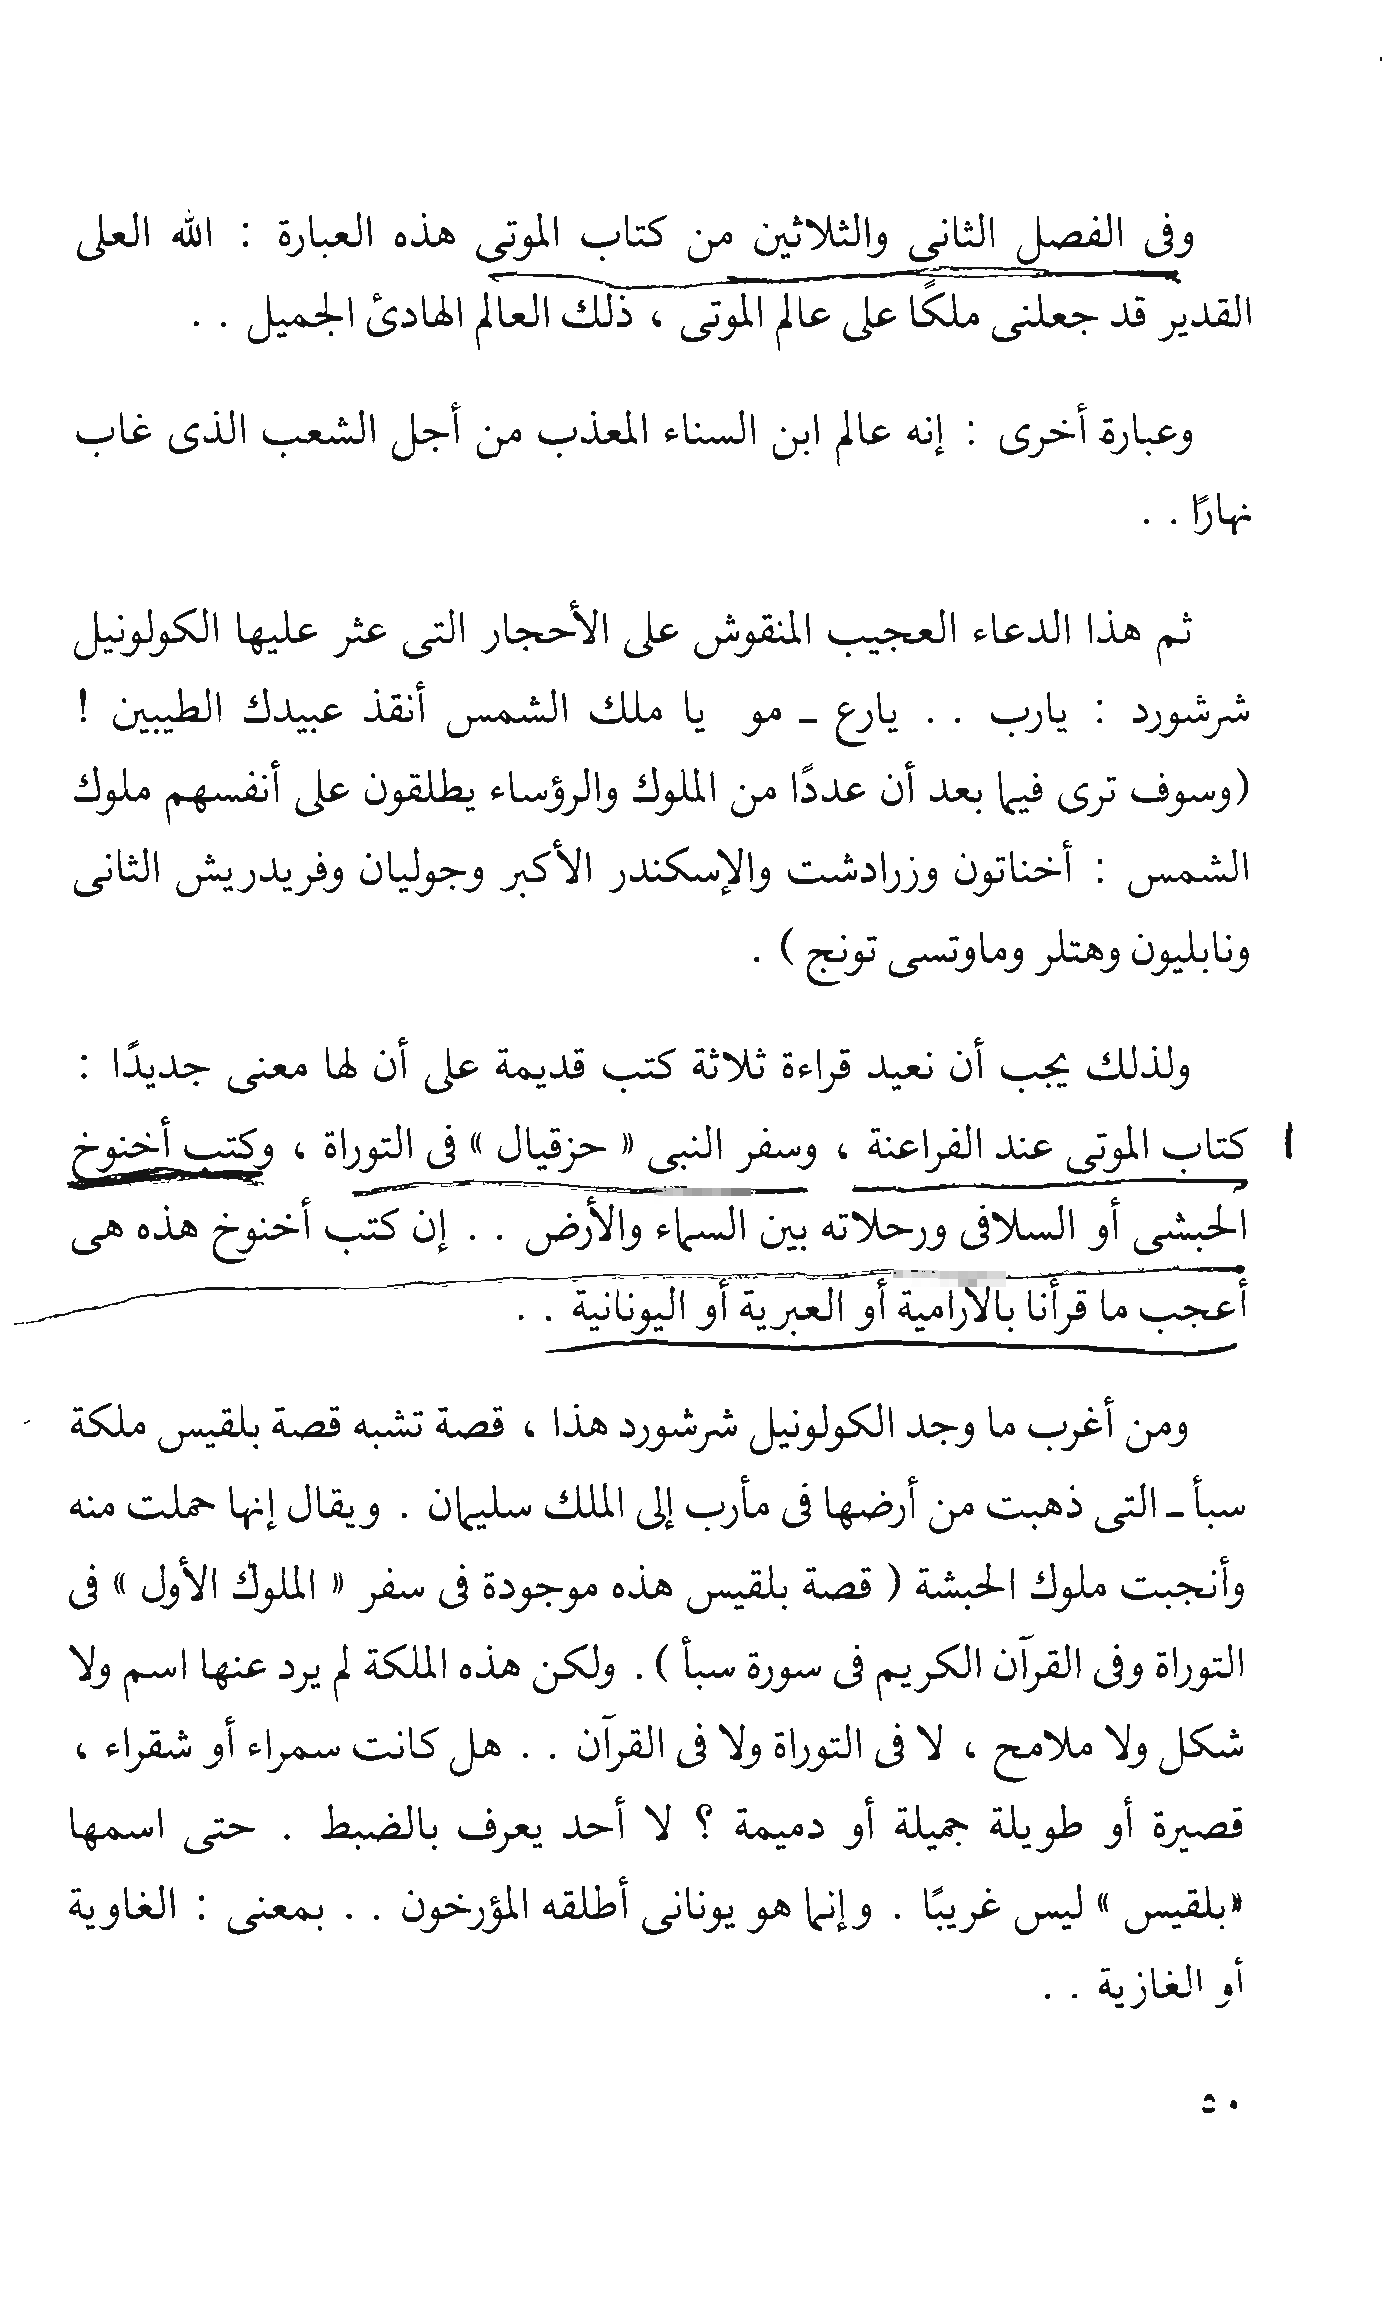 وفى الفصل الثانى والثلاثين من كتاب الموتى هذه العبارة : الله العلى
القدير قد جعلنى ملكًا على عالم الموتى ، ذلك العالم الهادئ الجميل . .
وعبارة أخرى : إنه عالم ابن السناء المعذب من أجل الشعب الذى غاب
نهارًا . .
ثم هذا الدعاء العجيب المنقوش على الأحجار التى عثر عليها الكولونيل
شرشورد : يارب . . يارع ـ مو يا ملك الشمس أنقذ عبيدك الطيبين !
(وسوف ترى فيما بعد أن عددًا من الملوك والرؤساء يطلقون على أنفسهم ملوك
الشمس : أخناتون وزرادشت والإسكندر الأكبر وجوليان وفريدريش الثانى
ونابليون وهتلر وماوتسى تونج ) .
ولذلك يجب أن نعيد قراءة ثلاثة كتب قديمة على أن لها معنى جديدًا :
كتاب الموتى عند الفراعنة ، وسفر النبى « حزقيال » فى التوراة ، وكتب أخنوخ
الحبشى أو السلافى ورحلاته بين السماء والأرض . . إن كتب أخنوخ هذه هى
أعجب ما قرأنا بالآرامية أو العبرية أو اليونانية . .
ومن أغرب ما وجد الكولونيل شرشورد هذا ، قصة تشبه قصة بلقيس ملكة
سبأ ـ التى ذهبت من أرضها فى مأرب إلى الملك سليمان . ويقال إنها حملت منه
وأنجبت ملوك الحبشة ( قصة بلقيس هذه موجودة فى سفر « الملوك الأول » فى
التوراة وفى القرآن الكريم فى سورة سبأ ) . ولكن هذه الملكة لم يرد عنها اسم ولا
شكل ولا ملامح ، لا فى التوراة ولا فى القرآن . . هل كانت سمراء أو شقراء ،
قصيرة أو طويلة جميلة أو دميمة ؟ لا أحد يعرف بالضبط . حتى اسمها
«بلقيس » ليس غريبًا . وإنما هو يونانى أطلقه المؤرخون . . بمعنى : الغاوية
أو الغازية . .
٥٠